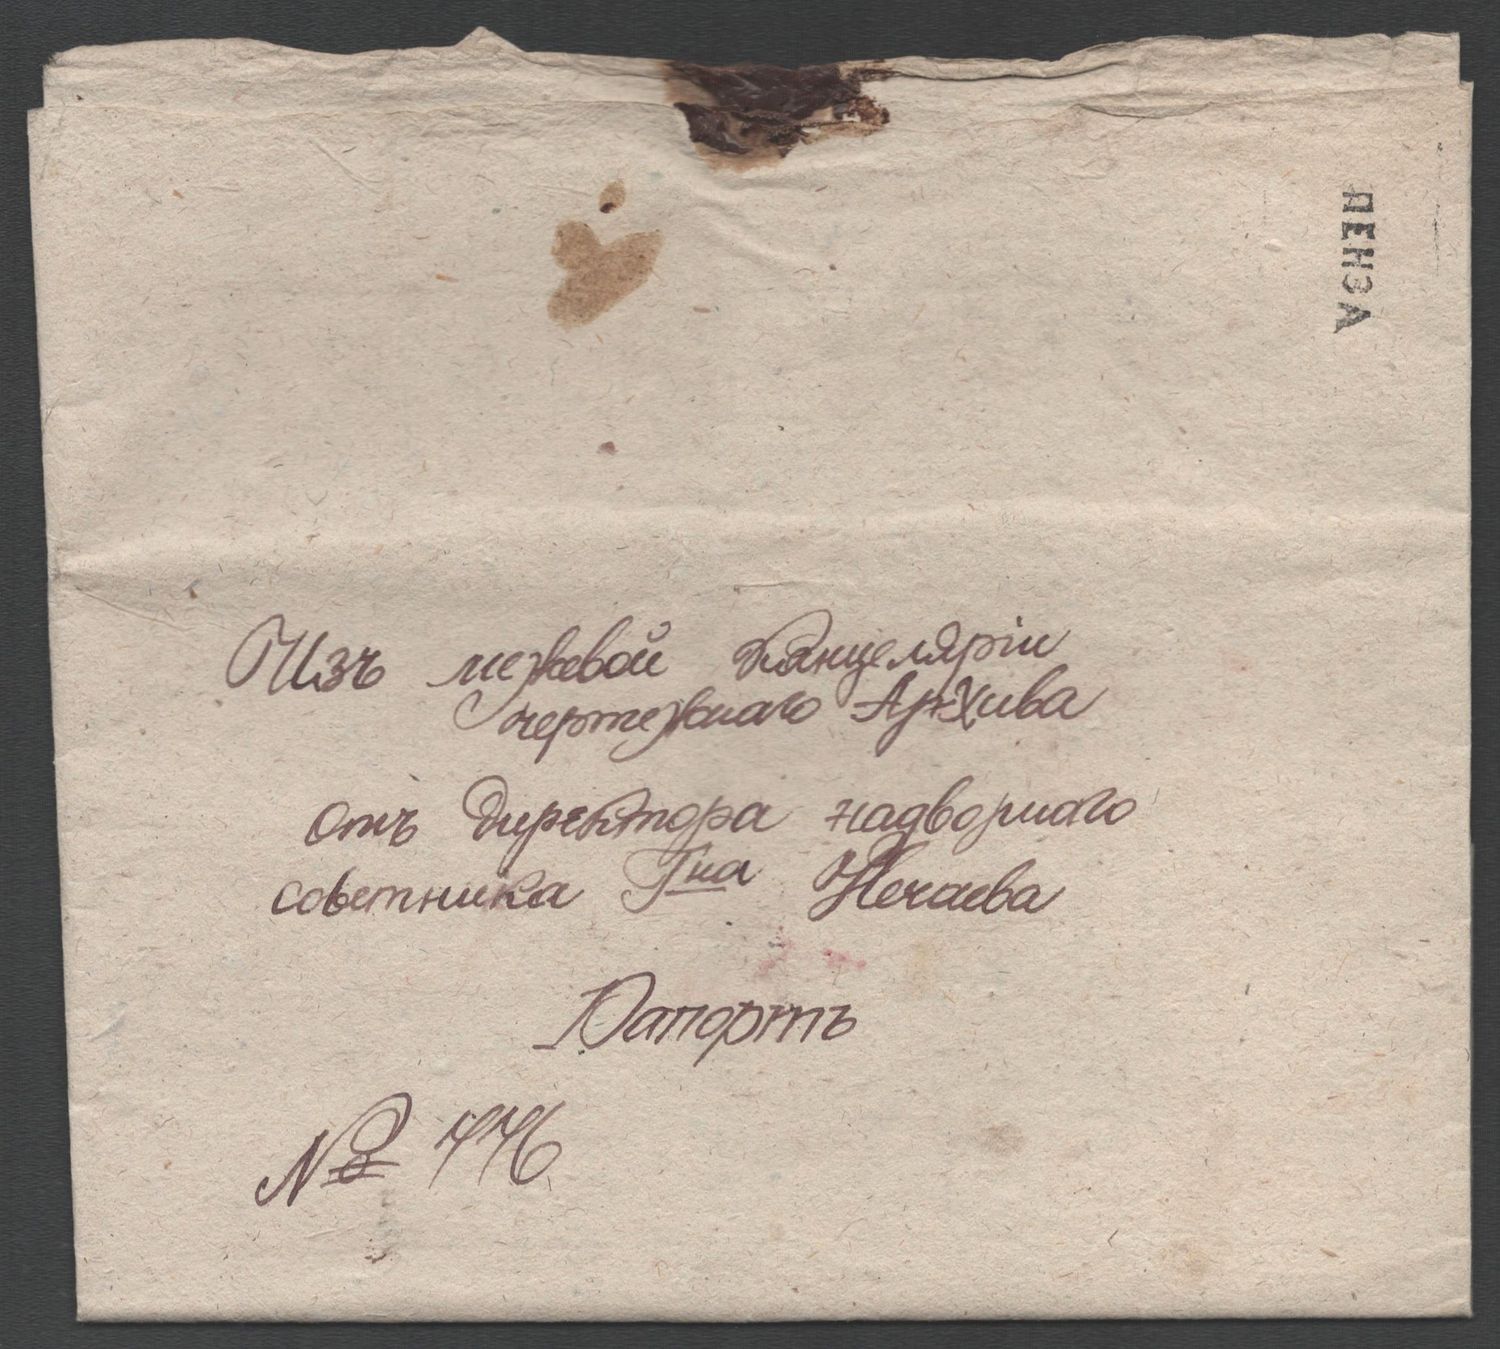 ПЕНЗА
Изъ межевой Канцеляріи
чертежнаго Архива
отъ директора надворнаго
советника Гна Нечаева
Рапортъ
№ 446